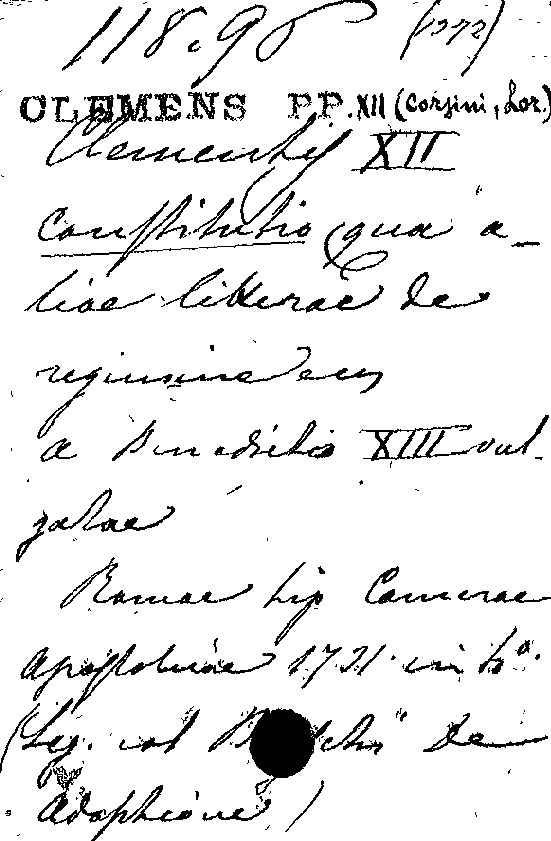 118. 9 (272)
CLEMENS PP. XII (Corsini, Lor.)
Clementis XII
Constitutio qua a-
liae litterae de
regimine
a Benedicto XIII vul-
gatae
Romae typ Camerae
Apostolicae 1731 in
(Leg. col de
Adoptione)